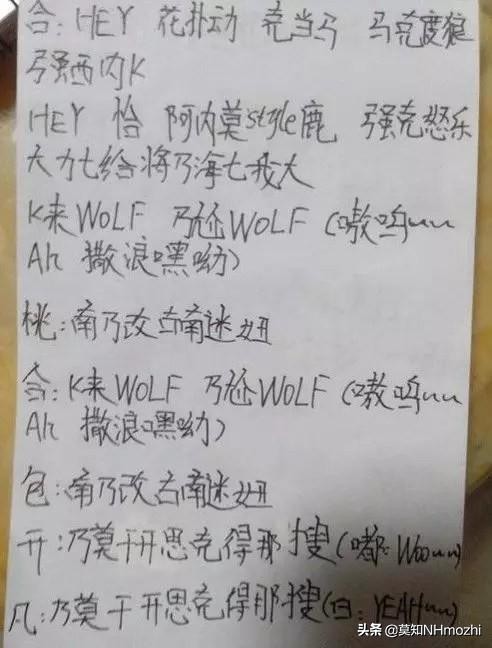 合: HEY 花扑动 克当马 马克度狼
强西内K
HEY 恰 阿内莫style鹿 强克怒乐
大力七给将乃海七我大
K来WOLF 乃尬WOLF (嗷呜~~
Ah 撒浪嘿呦)
桃: 南乃改古南迷妞
合: K来WOLF 乃尬WOLF (嗷呜~~
Ah 撒浪嘿呦)
包: 南乃改古南迷妞
开: 乃莫干开思克得那搜(嘟: Woo~~)
凡: 乃莫干开思克得那搜(白: YEAH~~)
头条 @莫知NHmozhi